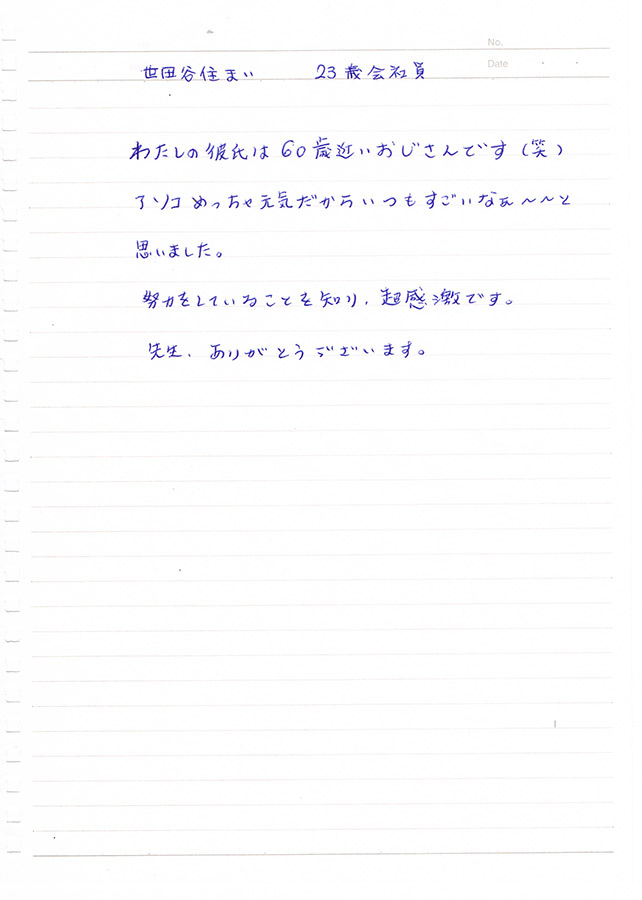 No.
Date
世田谷住まい 23歳会社員
わたしの彼氏は60歳近いおじさんです(笑)
アソコめっちゃ元気だからいつもすごいなぁ〜〜と
思いました。
努力をしていることを知り、超感激です。
先生、ありがとうございます。